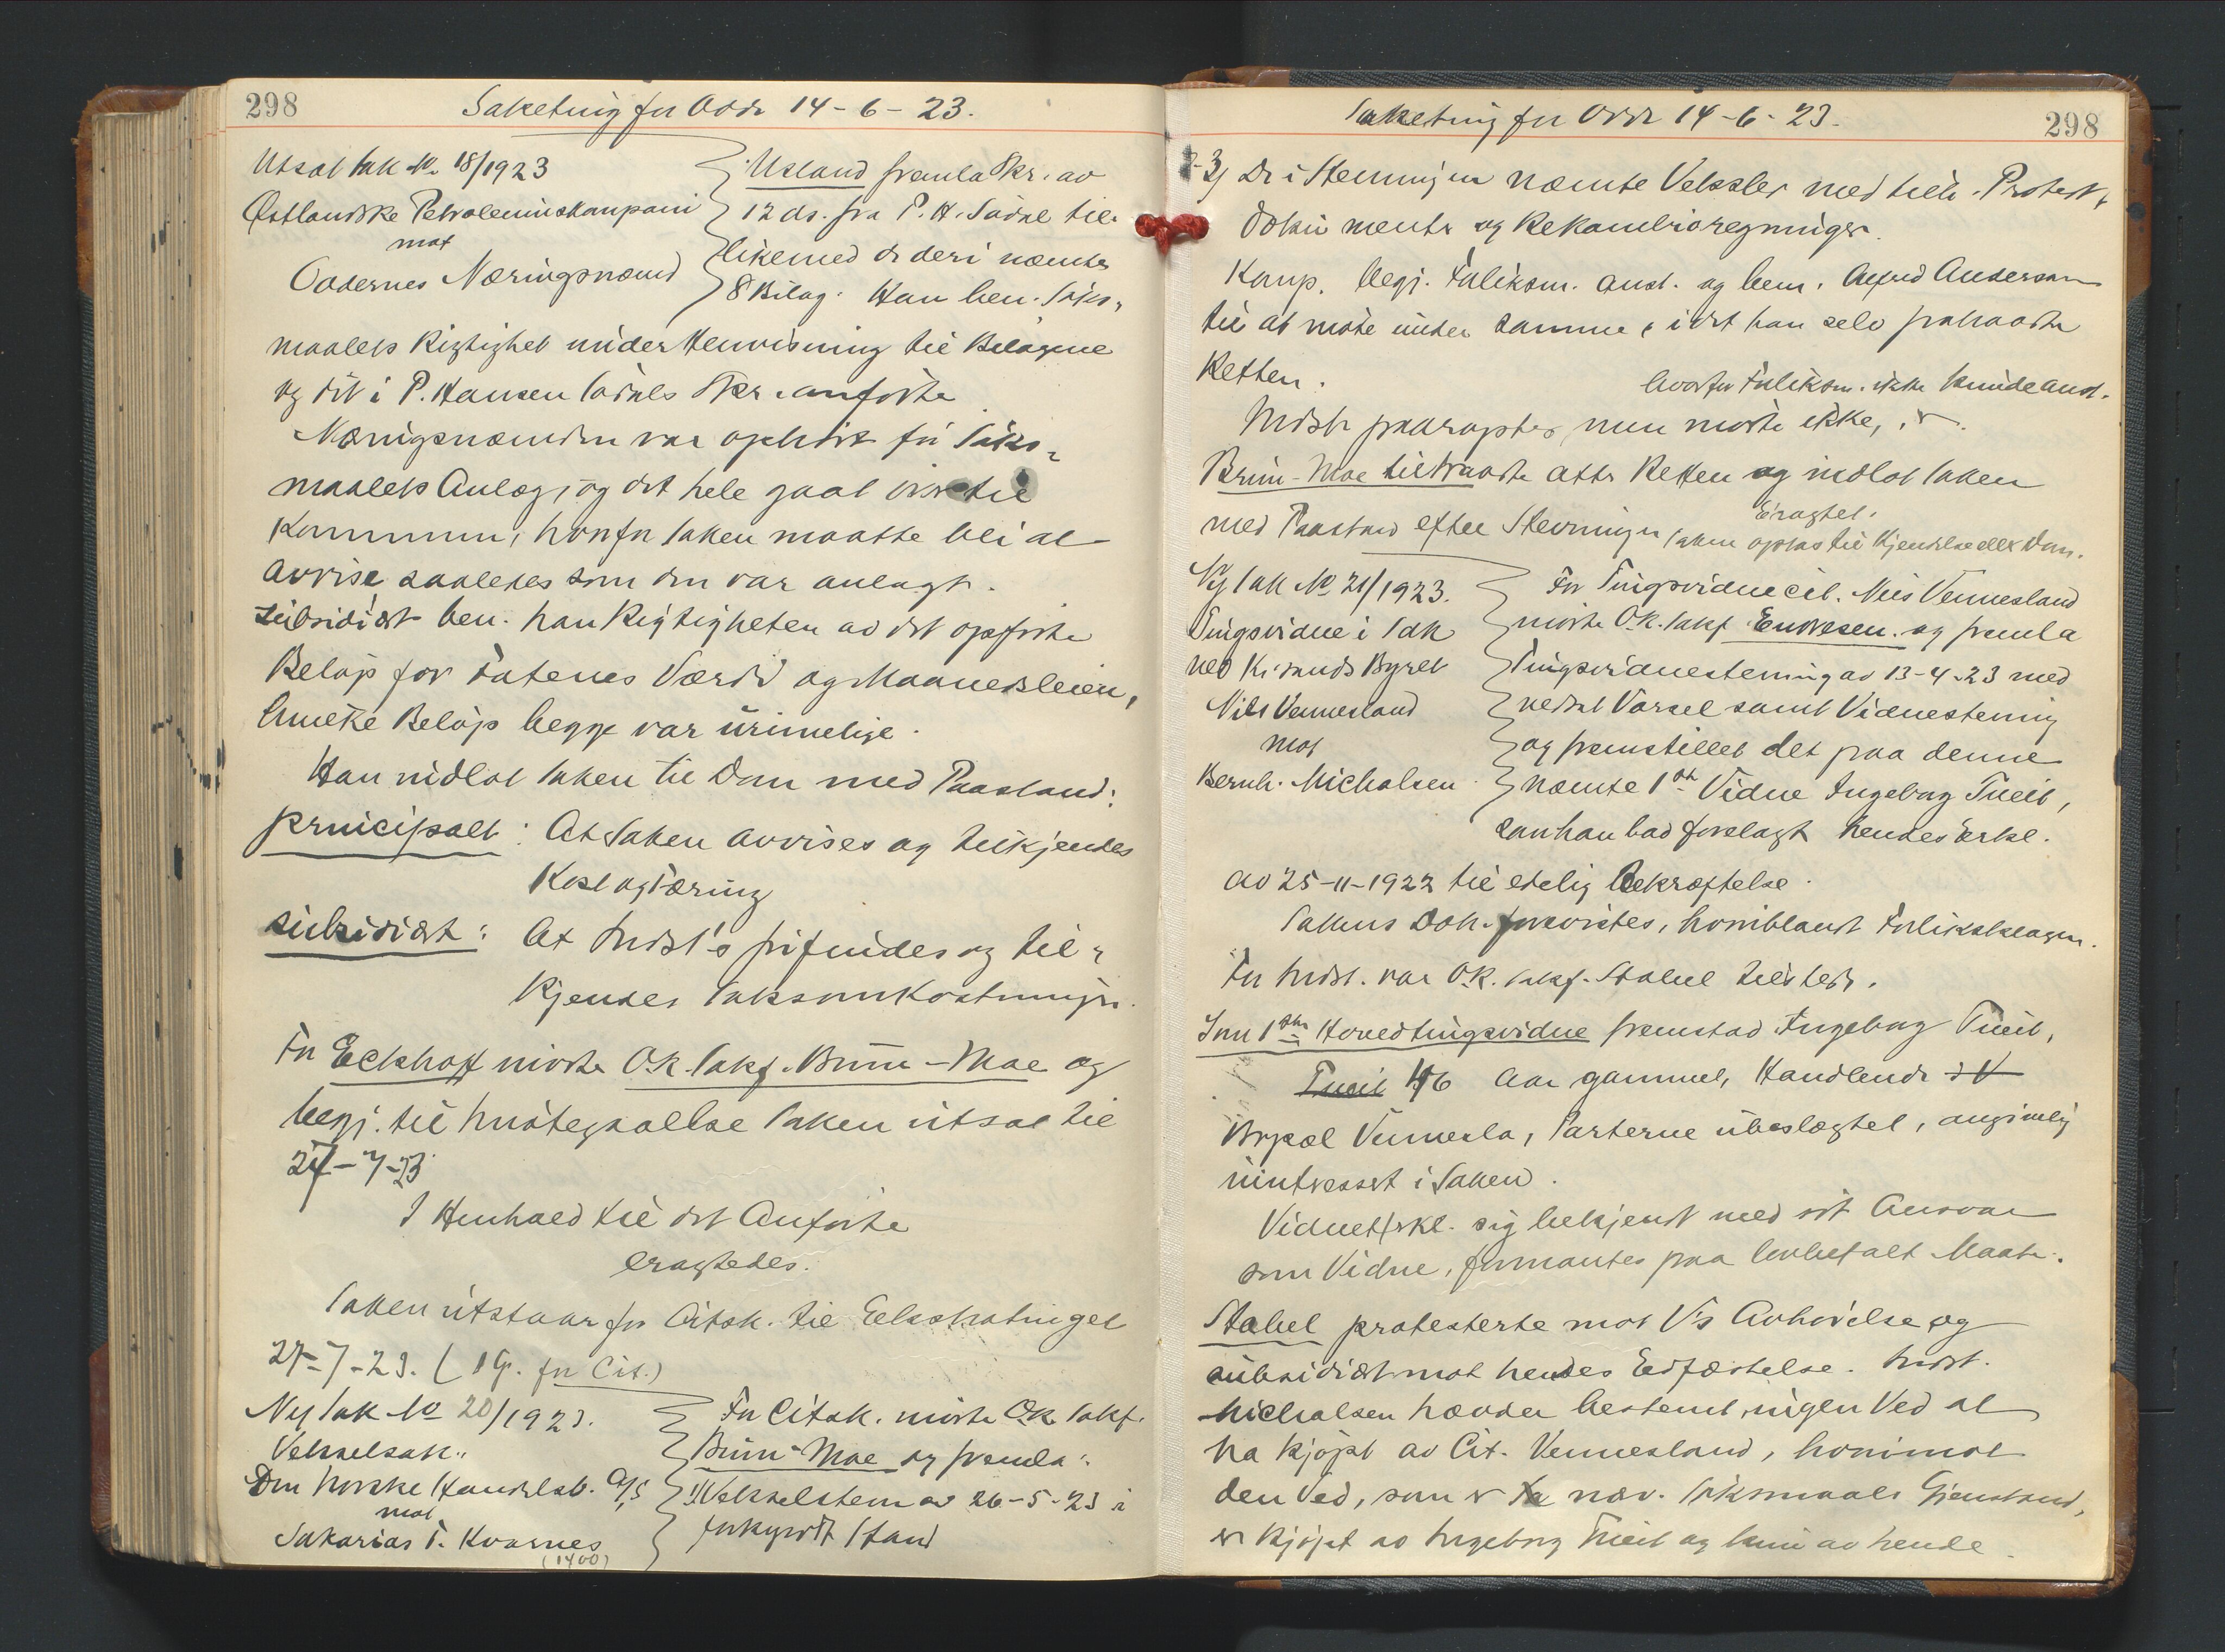 298
Saketing for Oddr 14-6-23.
Utsat Sak No. 18/1923
Østlandske Petroleumskompani
mot
Oddernes Næringsnævnd
Usland fremla Skr. av
12 ds. fra P. H. Sødal til-
likemed de deri nævnte
8 Bilag. Han ben. Søks-
maalets Rigtighet under Henvisning til Bilagene
og det i P. Hansen Sødals Skr. anførte
Næringsnævnden var ophævet før Søks-
maalets Anlæg, og det hele gaat over til
Kommunen, hvorfor Saken maatte bli at
avvise saaledes som den var anlagt.
Subsidiært ben. han Rigtigheten av det opførte
Beløp for Fatenes Værdi og Maanedsleien,
hvilke Beløp begge var urimelige.
Han indlot Saken til Dom med Paastand:
principalt: At Saken avvises og tilkjendes
Kost og Tæring
subsidiært: At Indst's frifindes og til-
kjendes Saksomkostninger.
For Eckhoff møtte O.R. Sakf. Bruun-Moe og
begj. til Imøtegaaelse Saken utsat til
27-7-23
I Henhold til det Anførte
eragtedes:
Saken utstaar for Citsk. til Ekstratinget
27-7-23. (1 G. for Cit.)
Ny Sak No 20/1923.
Vekselsak..
Den Norske Handelsb. A/S
mot
Sakarias T. Kvarnes
(1400)
For Citsk. møtte O.R. Sakf.
Bruun-Moe og fremla:
1) Vekselstevn av 26-5-23 i
forkyndt Stand
Saketing for Oddr 14-6-23.
298
2-3) De i Stevningen nævnte Veksler med tilh. Protest-
dokumenter og Rekambioregninger.
Komp. begj. Forliksm. anst. og bem. Alfred Anderson
til at møte under samme, idet han selv fratraadte
Retten.
hvorfor Forliksm. ikke kunde anst.
Indst. paaraaptes, men møtte ikke,
Bruun-Moe tiltraadte atter Retten og indlot Saken
med Paastand efter Stevningen
Eragtet:
Saken optas til Kjendelse eller Dom.
Ny Sak No 21/1923.
Tingsvidne i Sak
ved Kr.sands Byret
Nils Vennesland
mot
Bernh. Michalsen
For Tingsvidnecit. Nils Vennesland
møtte O.R. Sakf. Enoksen og fremla
Tingsvidnestevning av 13-4-23 med
vedsat Varsel samt Vidnestevning
og fremstillet det paa denne
nævnte 1ste Vidne Ingeborg Tveit,
som han bad forelagt hendes Erkl.
av 25-11-1922 til edelig Bekræftelse.
Sakens Dok. forevistes, hvoriblandt Forliksklagen.
For Indst. var O.R. Sakf. Stabel tilstede.
Som 1ste Hovedtingsvidne fremstod Ingeborg Tveit,
Tveit 46 Aar gammel, Handlende i V
Vennesla, Parterne ubeslægtet, angivelig
uintressert i Saken.
Vidnet erkl. sig bekjendt med sit Ansvar
som Vidne, formantes paa lovbefalt Maate.
Stabel protesterte mot V's Avhørelse og
subsidiært mot hendes Edfæstelse. Indst.
Michalsen hævder bestemt ingen Ved at
ha kjøpt av Cit. Vennesland, hvorimot
den Ved, som er nærv. Søksmaals Gjenstand,
er kjøpt av Ingeborg Tveit og kun av hende.